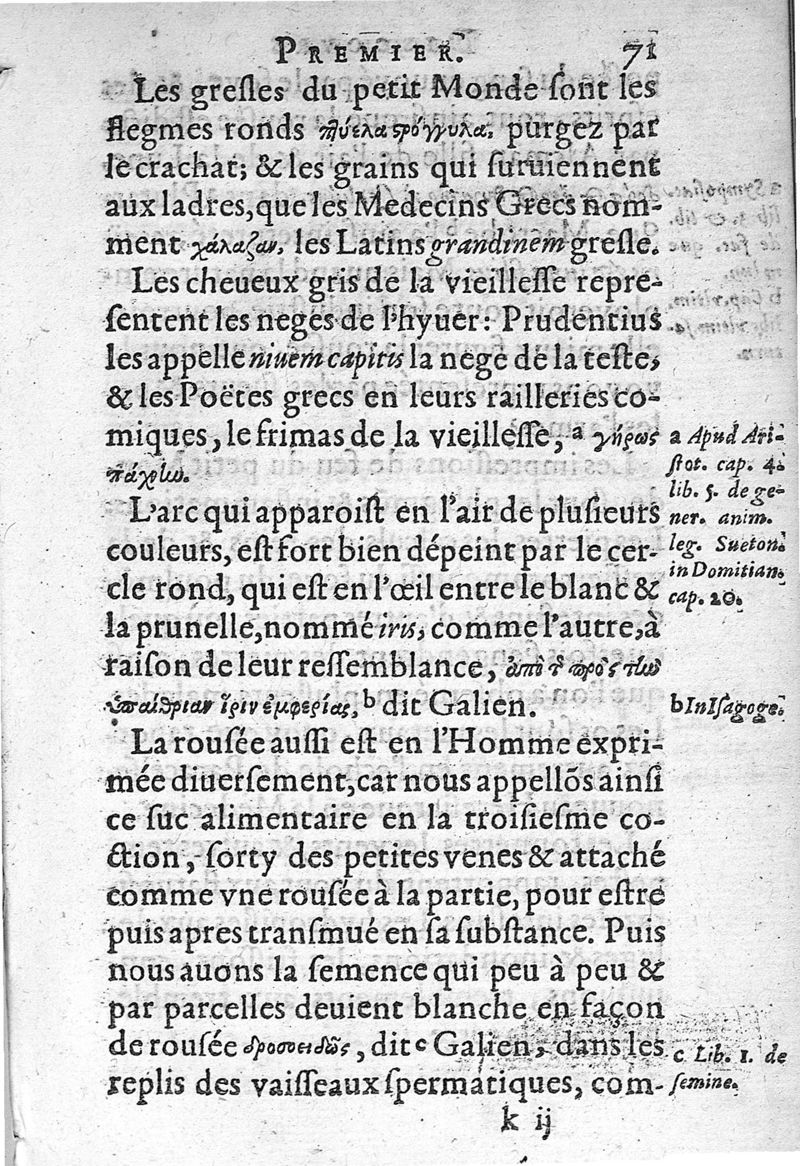 PREMIER. 71
Les gresles du petit Monde ſont les
flegmes ronds πύελα ςρόγγυλα, purgez par
le crachat; & les grains qui ſuruiennent
aux ladres, que les Medecins Grecs nom-
ment χάλαζαν, les Latins grandinem gresle.
Les cheueux gris de la vieilleſſe repre-
ſentent les neges de l'hyuer: Prudentius
les appelle niuem capitis la nege de la teſte,
& les Poëtes grecs en leurs railleries co-
miques, le frimas de la vieilleſſe, ᵃ γήρως
πάχνην.
a Apud Ari-
ſtot. cap. 4.
lib. 5. de ge-
ner. anim.
leg. Sueton.
in Domitian.
cap. 20.
L'arc qui apparoiſt en l'air de pluſieurs
couleurs, eſt fort bien dépeint par le cer-
cle rond, qui eſt en l'œil entre le blanc &
la prunelle, nommé iris, comme l'autre, à
raiſon de leur reſſemblance, ἀπὸ τ πρὸς τὴν
ὑπαίθριαν ἶριν ἐμφερίας, ᵇ dit Galien.
b In Iſagoge.
La rouſée auſſi eſt en l'Homme expri-
mée diuerſement, car nous appellõs ainſi
ce ſuc alimentaire en la troiſieſme co-
ction, ſorty des petites venes & attaché
comme vne rouſée à la partie, pour eſtre
puis apres tranſmué en ſa ſubſtance. Puis
nous auons la ſemence qui peu à peu &
par parcelles deuient blanche en façon
de rouſée δροσοειδῶς, dit ᶜ Galien, dans les
replis des vaiſſeaux ſpermatiques, com-
c Lib. 1. de
ſemine.
k ij